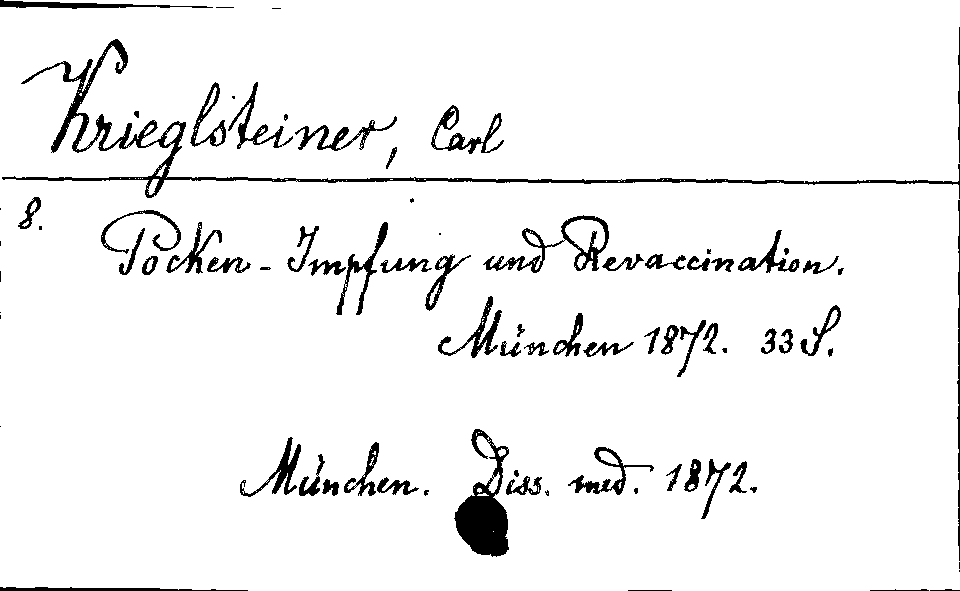 Krieglsteiner, Carl
8.
Pocken-Impfung und Revaccination.
München 1872. 33 S.
München. Diss. med. 1872.